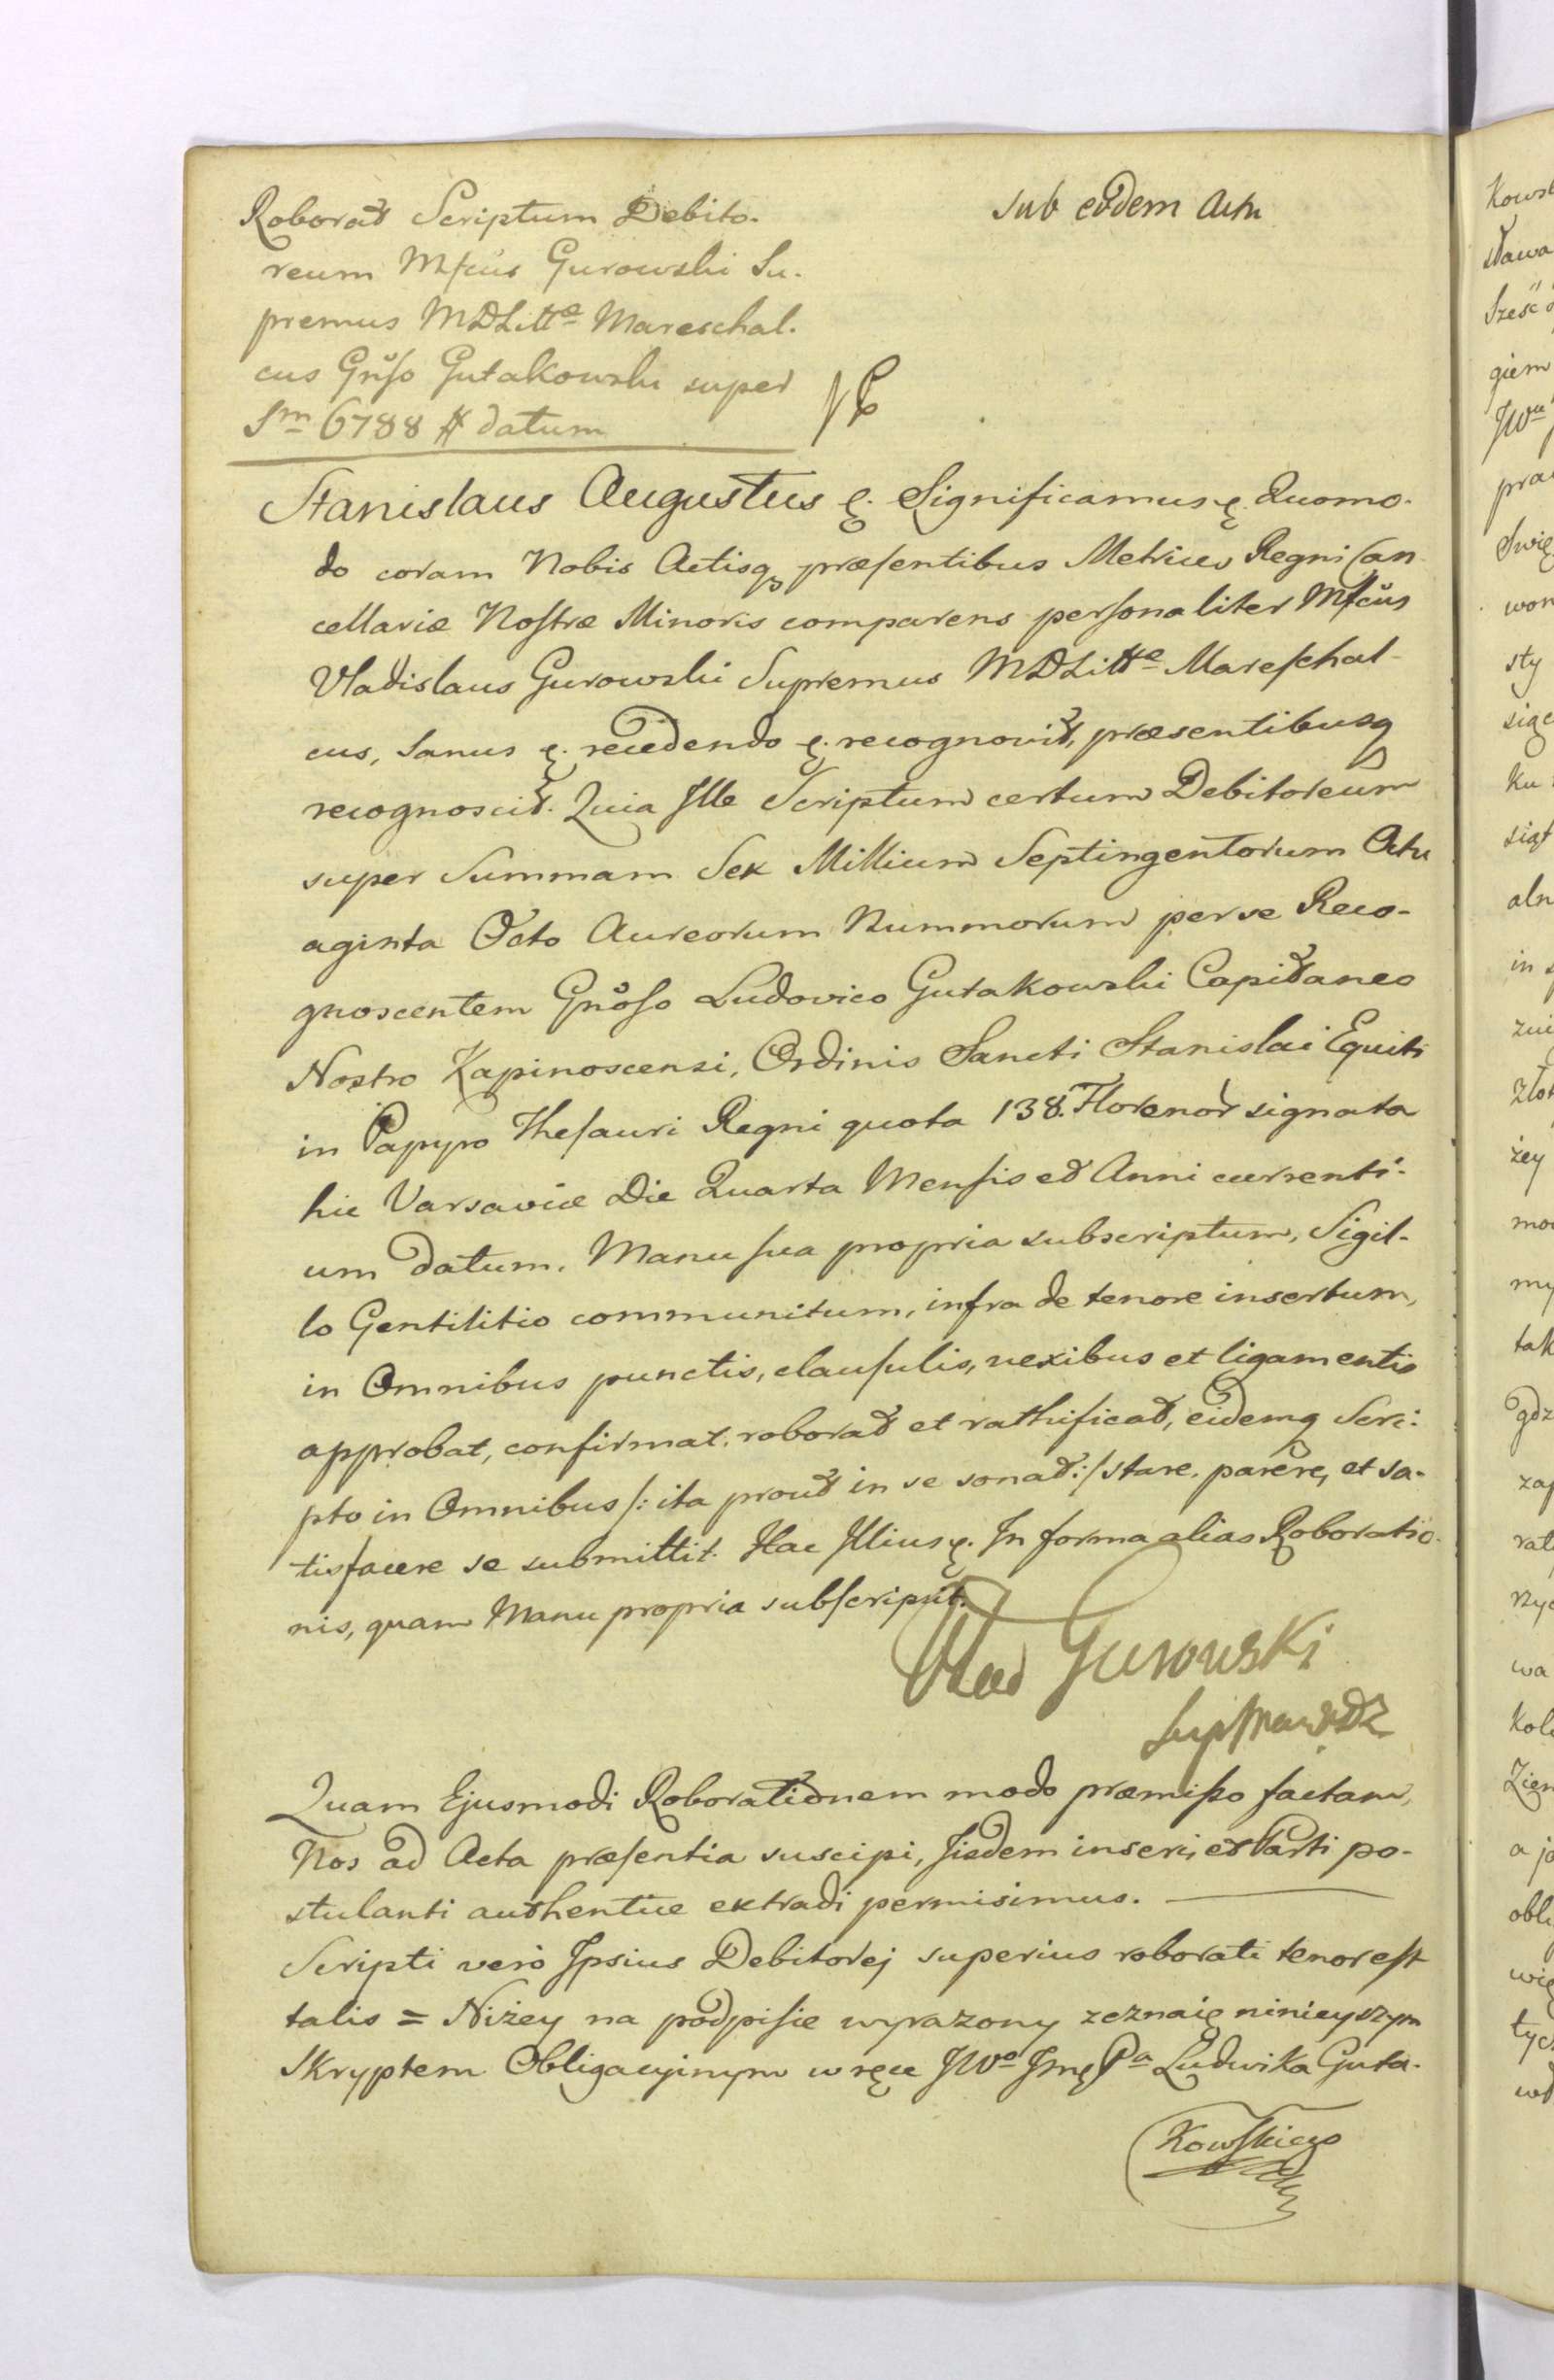 Roborat Scriptum Debito-
reum Mfcus Gurowski Su-
premus MDLittæ Mareschal-
cus Gnoso Gutakowski super
Sm 6788 # datum
sub eodem Actu
Stanislaus Augustus &. Significamus &. Quomo-
do coram Nobis Actisq præsentibus Metrices Regni Can-
cellariæ Nostræ Minoris comparens personaliter Mfcus
Vladislaus Gurowski Supremus MDLittæ Mareschal-
cus, Sanus &. recedendo &. recognovit, præsentibusq
recognoscit. Quia Ille Scriptum certum Debitoreum
super Summam Sex Millium Septingentorum Octu
aginta Octo Aureorum Nummorum per se Reco-
gnoscentem Gnoso Ludovico Gutakowski Capitaneo
Nostro Kapinoscensi, Ordinis Sancti Stanislai Equiti
in Papyro Thesauri Regni quota 138. Florenor signata
hic Varsaviæ Die Quarta Mensis et Anni currenti-
um datum. Manu sua propria subscriptum, Sigil-
lo Gentilitio communitum, infra de tenore insertum,
in Omnibus punctis, clausulis, nexibus et ligamentis
approbat, confirmat, roborat et rathificat, eidemq Scri-
pto in Omnibus /: ita prout in se sonat :/ stare, parere, et sa-
tisfacere se submittit. Hac Illius &. In forma alias Roboratio-
nis, quam Manu propria subscripsit.
Wład Gurowski
Quam Ejusmodi Roborationem modo præmisso factam,
Nos ad Acta præsentia suscipi, Iisdem inseri, et Parti po-
stulanti authentice extradi permisimus.
Scripti verò Ipsius Debitorej superius roborati tenor est
talis = Niżey na podpisie wyrazony zeznaię ninieyszym
Skryptem Obligacyinym w ręce JWo Jmę Pa Ludwika Guta-
kowskiego